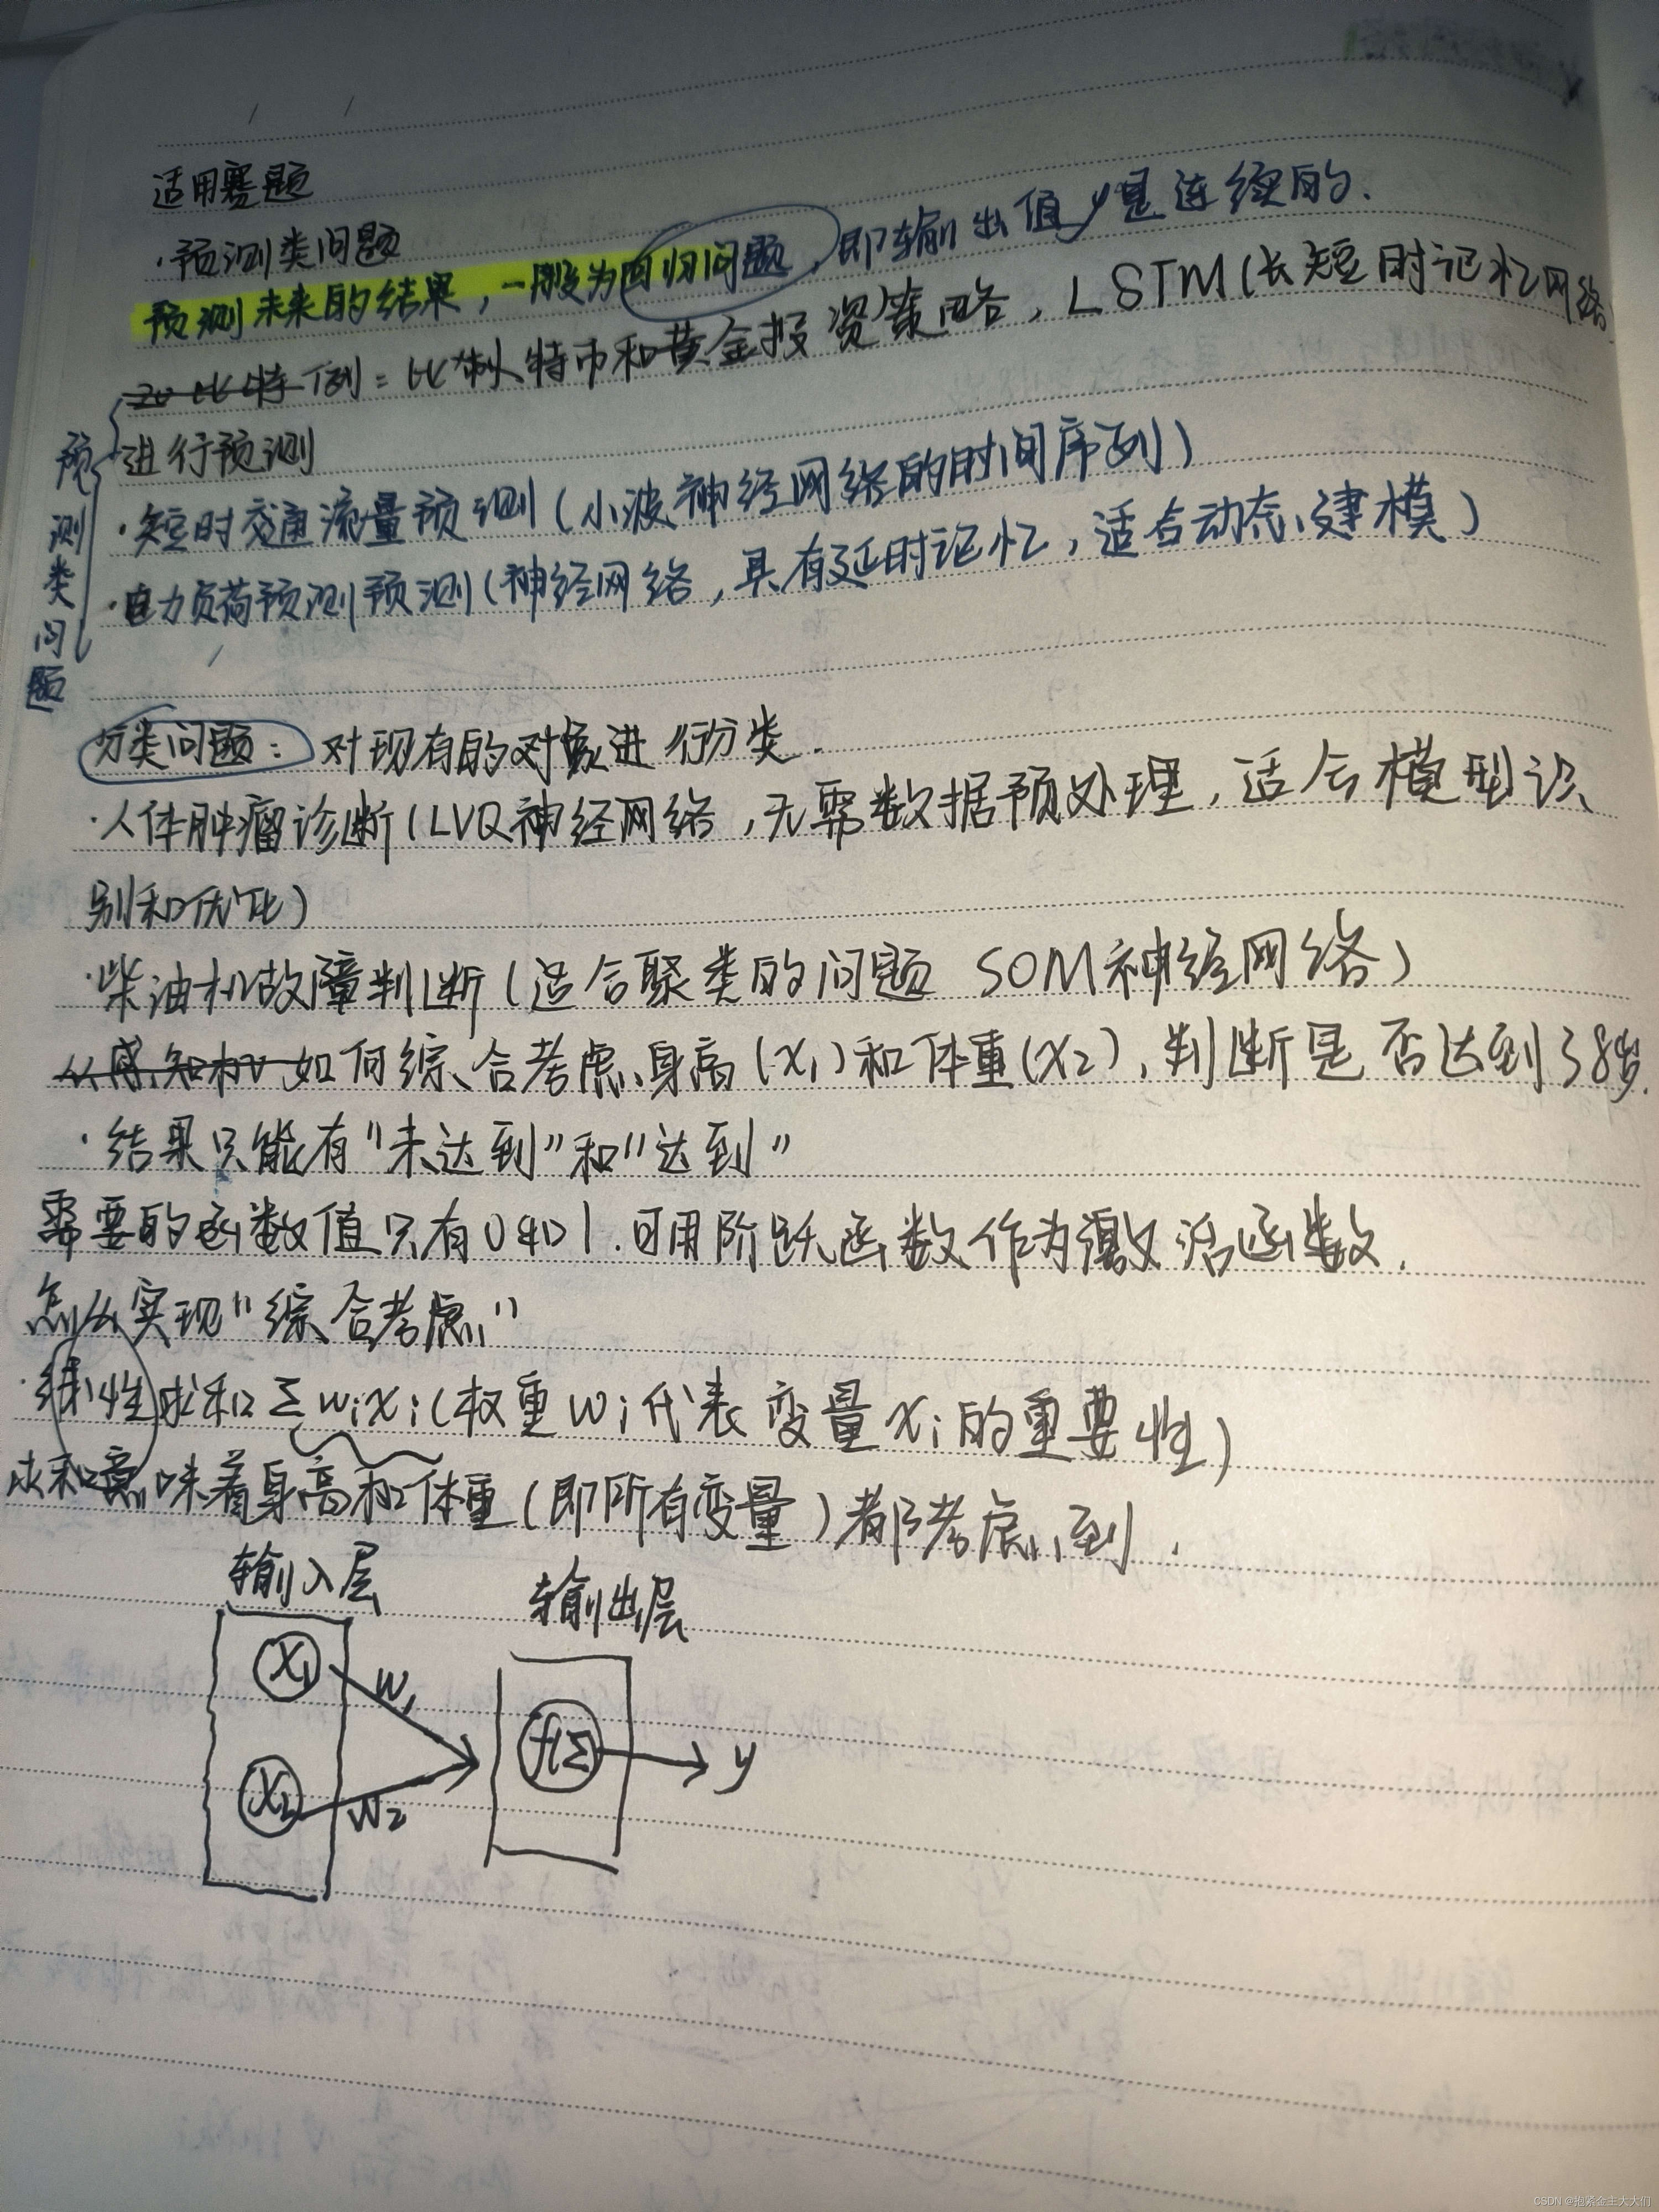 适用赛题
·预测类问题
预测未来的结果，一般为回归问题，即输出值y是连续的.
例：比特币和黄金投资策略，LSTM(长短时记忆网络)
进行预测
·短时交通流量预测(小波神经网络的时间序列)
·电力负荷预测预测(神经网络，具有延时记忆，适合动态建模)
预测类问题
分类问题：对现有的对象进行分类.
·人体肿瘤诊断(LVQ神经网络，无需数据预处理，适合模型识
别和优化)
·柴油机故障判断(适合聚类的问题 SOM神经网络)
如何综合考虑身高(x1)和体重(x2)，判断是否达到38岁.
·结果只能有"未达到"和"达到"
需要的函数值只有0和1.可用阶跃函数作为激活函数.
怎么实现"综合考虑"
·线性求和Σwixi(权重wi代表变量xi的重要性)
求和意味着身高和体重(即所有变量)都考虑到.
输入层 输出层
x1 w1
f(Σ) y
x2 w2
CSDN @抱紧金主大大们